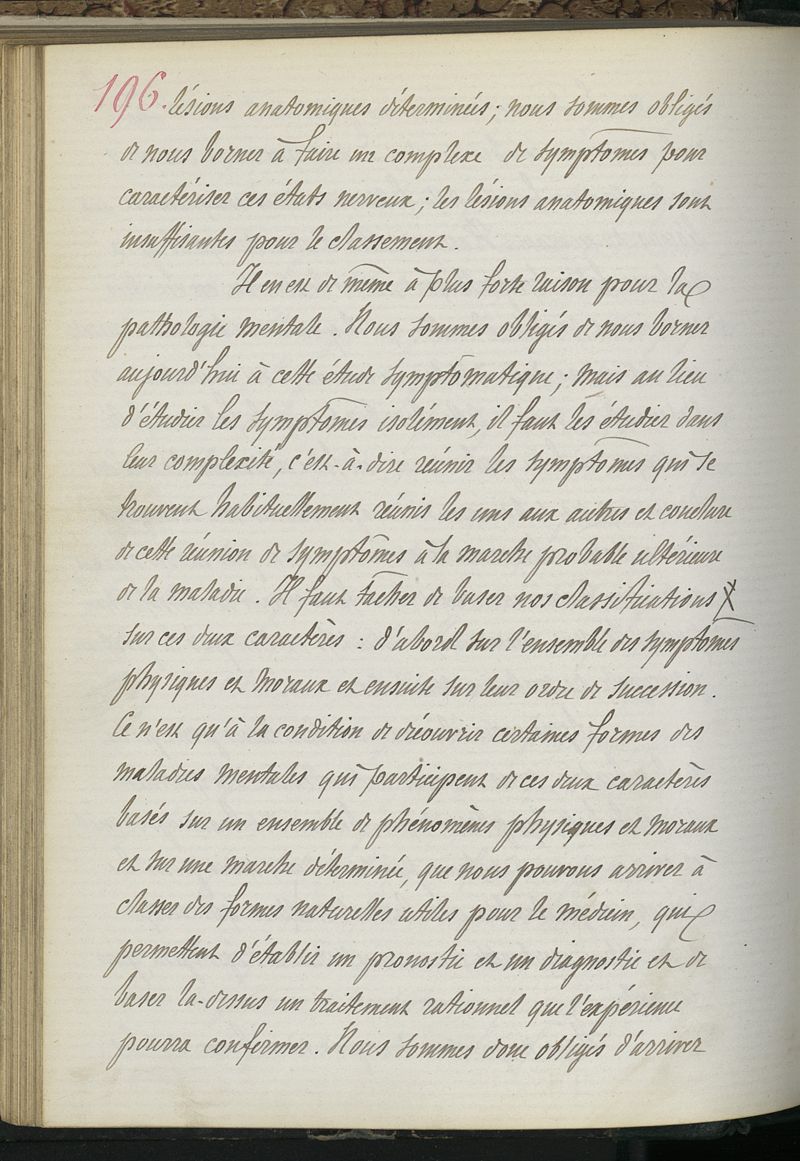 196. lésions anatomiques déterminées ; nous sommes obligés
de nous borner à faire un complexe de symptômes pour
caractériser ces états nerveux ; les lésions anatomiques sont
insuffisantes pour le classement.
Il en est de même à plus forte raison pour la
pathologie mentale. Nous sommes obligés de nous borner
aujourd'hui à cette étude symptomatique ; mais au lieu
d'étudier les symptômes isolément, il faut les étudier dans
leur complexité, c'est-à-dire réunir les symptômes qui se
trouvent habituellement réunis les uns aux autres et conclure
de cette réunion de symptômes à la marche probable ultérieure
de la maladie. Il faut tâcher de baser nos classifications
sur ces deux caractères : d'abord sur l'ensemble des symptômes
physiques et moraux et ensuite sur leur ordre de succession.
Ce n'est qu'à la condition de découvrir certaines formes des
maladies mentales qui participent de ces deux caractères
basés sur un ensemble de phénomènes physiques et moraux
et sur une marche déterminée, que nous pouvons arriver à
classer des formes naturelles utiles pour le médecin, qui
permettent d'établir un pronostic et un diagnostic et de
baser là-dessus un traitement rationnel que l'expérience
pourra confirmer. Nous sommes donc obligés d'arriver